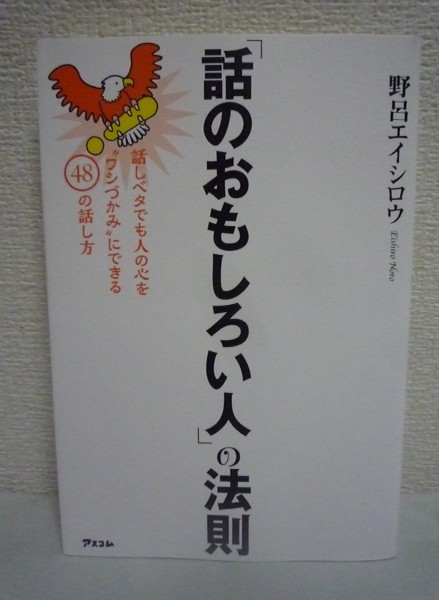 野呂エイシロウ
Eishiro Noro
「話のおもしろい人」の法則
話しベタでも人の心を
“ワシづかみ”にできる
48の話し方
アスコム